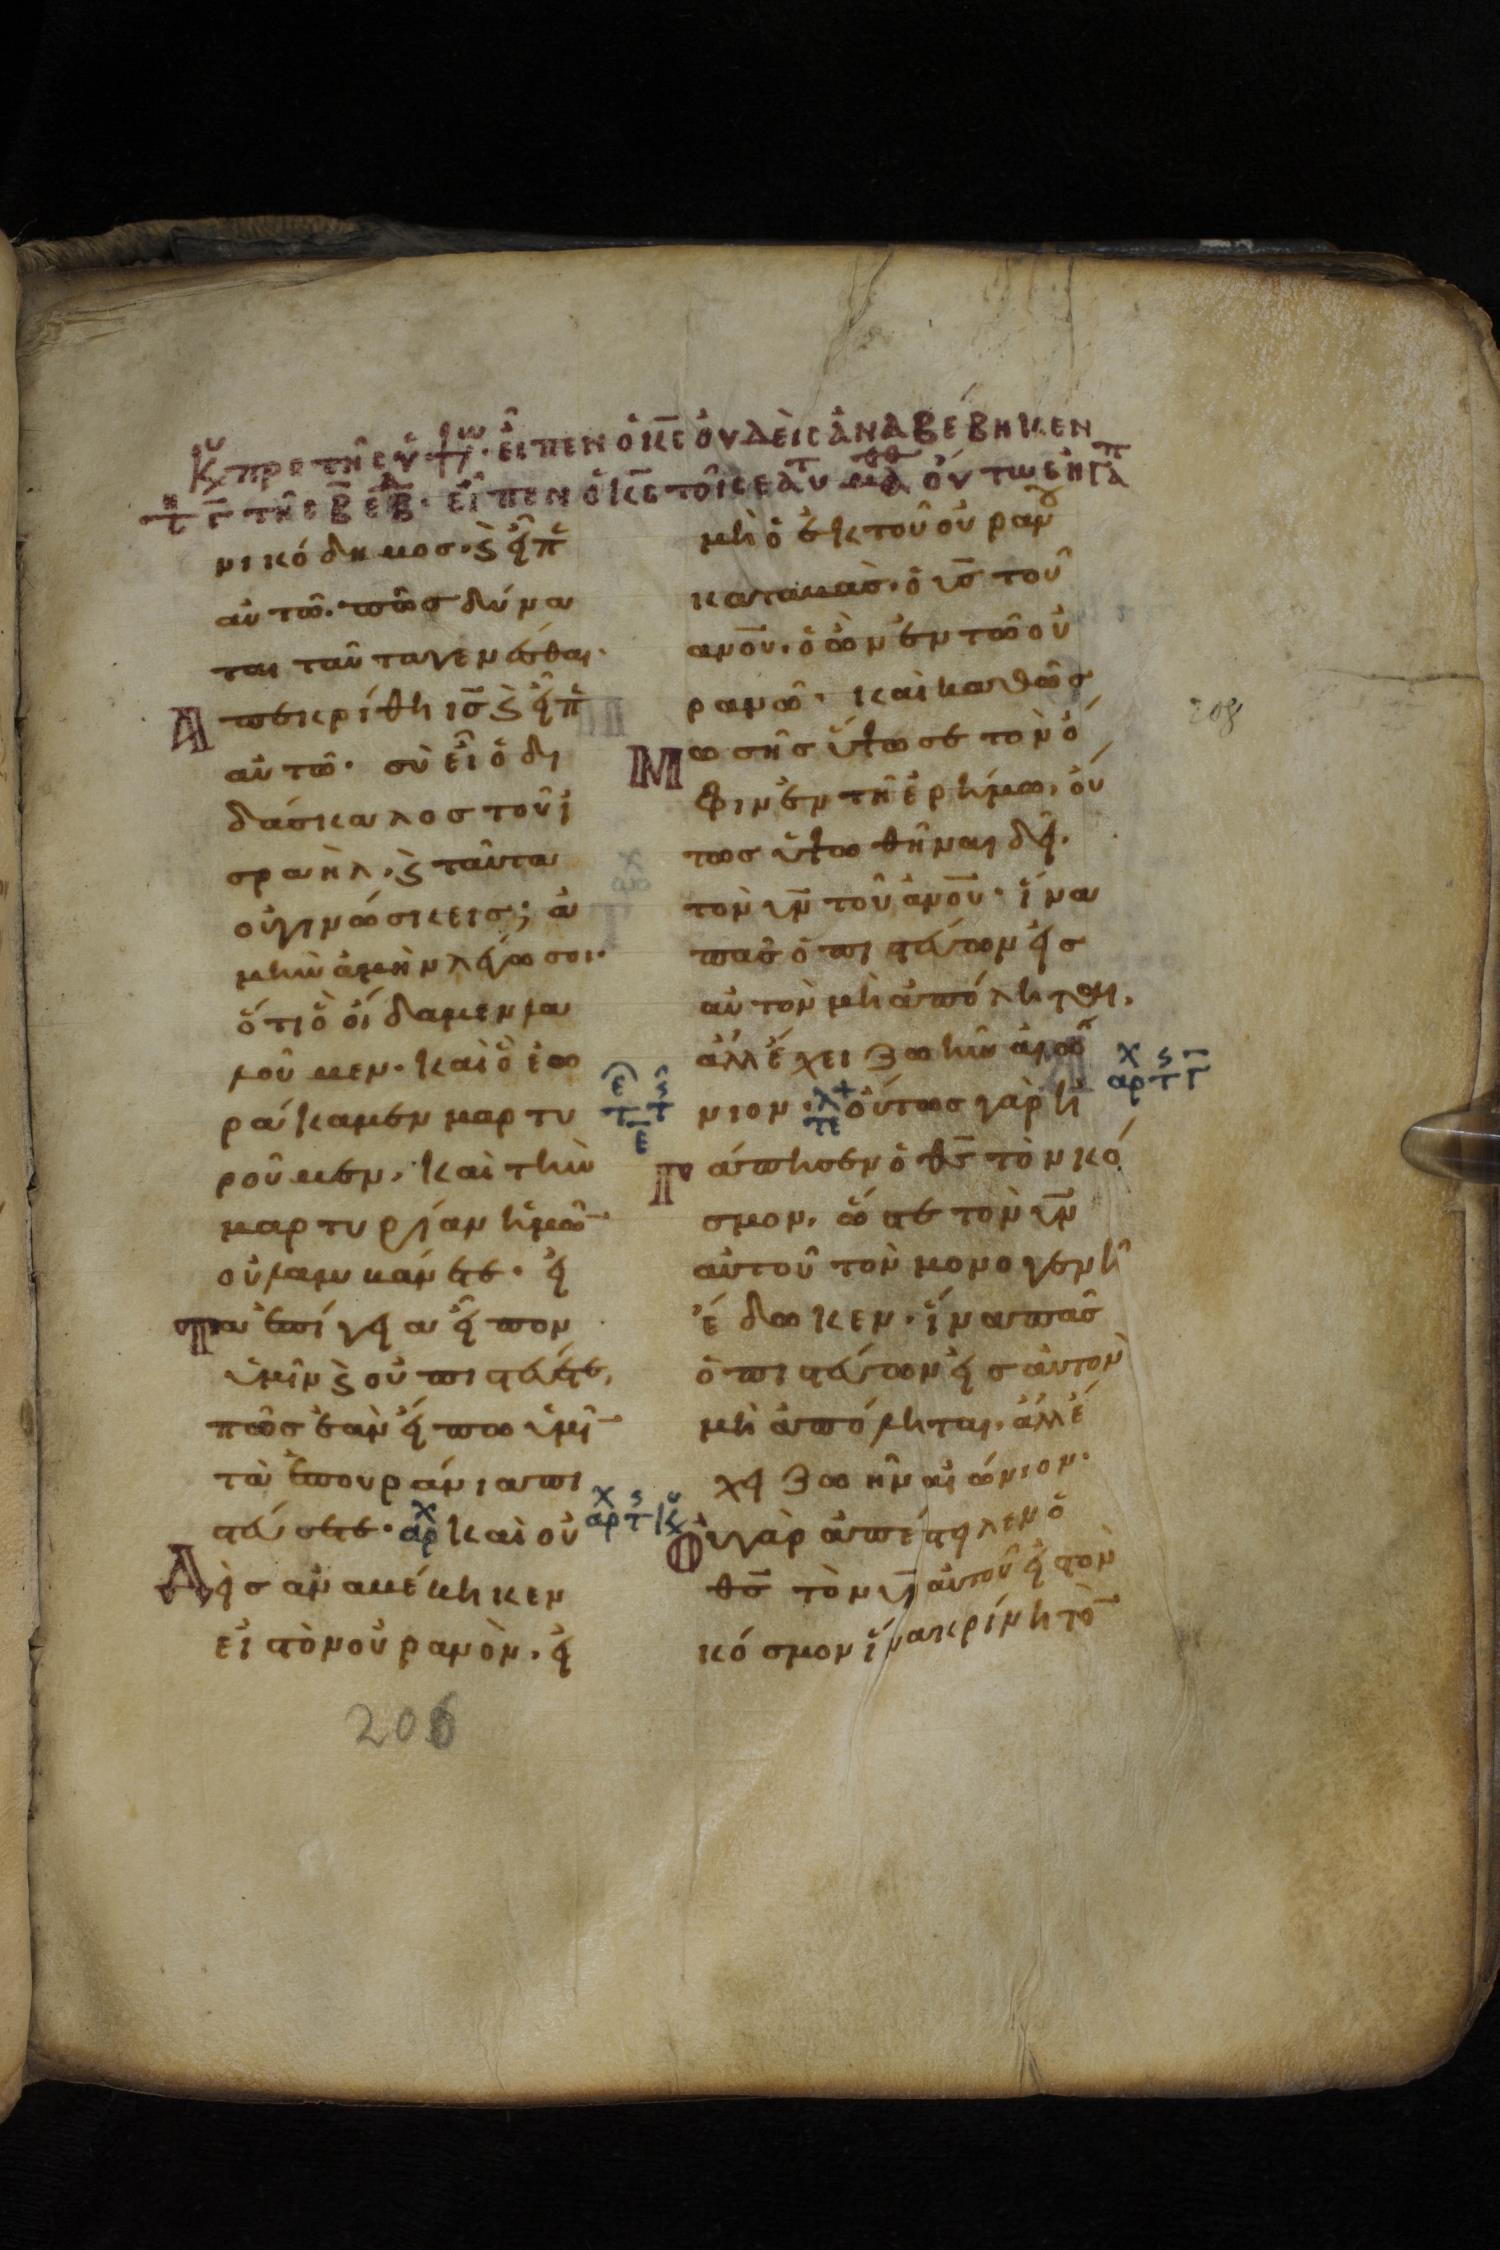 εἶπεν ὁ κ̅ς̅ οὐδεὶς ἀναβέβηκεν
εἶπεν ὁ κ̅ς̅ τοῖς ἑαυ μαθ οὕτως ἠγάπ
νικόδημος· ϗ εἶπε
αὐτῶ· πῶς δύνα
ται ταῦτα γενέσθαι·
ἀπεκρίθη ι̅ς̅ ϗ εἶπε
αὐτῶ· σὺ εἶ ὁ δι
δάσκαλος τοῦ ἰ
σραὴλ, ϗ ταῦτα
οὐ γινώσκεις; ἀ
μὴν ἀμὴν λέγω σοι·
ὅτι ὃ οἴδαμεν λα
λοῦμεν· καὶ ὃ ἑω
ράκαμεν μαρτυ
ροῦμεν, καὶ τὴν
μαρτυρίαν ἡμῶ̅
οὐ λαμβάνετε· εἰ
τὰ ἐπίγεια εἶπον
ὑμῖν ϗ οὐ πιστεύετε,
πῶς ἐὰν εἴπω ὑμῖ̅
τὰ ἐπουράνια πι
στεύσετε· αρχ καὶ οὐ
δεὶς ἀναβέβηκεν
εἰς τὸν οὐρανὸν, εἰ
μὴ ὁ ἐκ τοῦ οὐρανοῦ
καταβάς· ὁ υ̅ς̅ τοῦ
α̅ν̅ο̅υ̅· ὁ ὢν ἐν τῶ οὐ
ρανῶ· καὶ καθὼς
Μωσῆς ὕψωσε τὸν ὄ
φιν ἐν τῆ ἐρήμω, οὕ
τως ὑψωθῆναι δεῖ
τὸν υ̅ν̅ τοῦ α̅ν̅ο̅υ̅· ἵνα
πᾶς ὁ πιστεύων εἰς
αὐτὸν μὴ ἀπόληται,
ἀλλ' ἔχει ζωὴν αἰώ
νιον· τε οὕτως γὰρ ἠ
γάπησεν ὁ θ̅ς̅ τὸν κό
σμον, ὥστε τὸν υ̅ν̅
αὐτοῦ τὸν μονογενῆ
ἔδωκεν· ἵνα πᾶς
ὁ πιστεύων εἰς αὐτὸν
μὴ ἀπόληται, ἀλλ' ἔ
χει ζωὴν αἰώνιον·
Οὐ γὰρ ἀπέστειλεν ὁ
θ̅ς̅ τὸν υ̅ν̅ αὐτοῦ εἰς τὸν
κόσμον ἵνα κρίνη τὸ̅
208
206